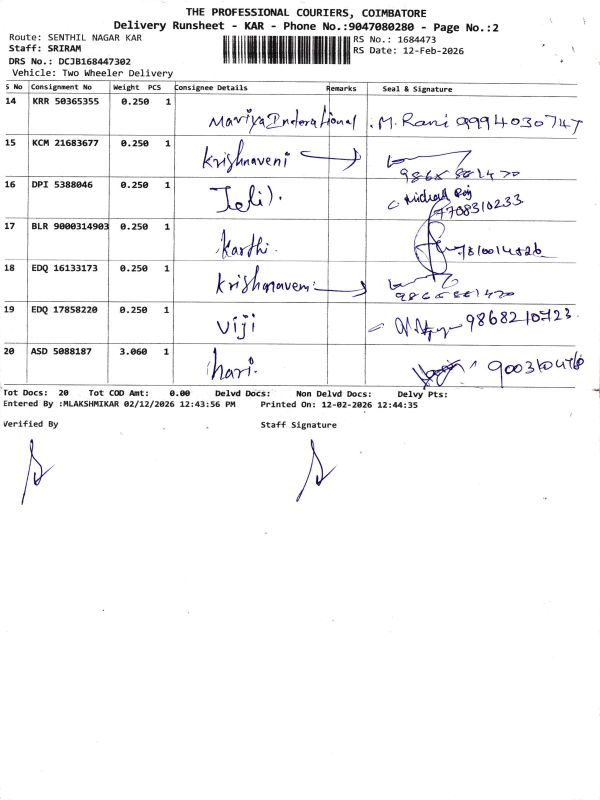 THE PROFESSIONAL COURIERS, COIMBATORE
Delivery Runsheet - KAR - Phone No.:9047080280 - Page No.:2
Route: SENTHIL NAGAR KAR
RS No.: 1684473
Staff: SRIRAM
RS Date: 12-Feb-2026
DRS No.: DCJB168447302
Vehicle: Two Wheeler Delivery
S No Consignment No Weight PCS Consignee Details Remarks Seal & Signature
14 KRR 50365355 0.250 1 Mariya International . M. Rani 9994030747
15 KCM 21683677 0.250 1 Krishnaveni
16 DPI 5388046 0.250 1 Michael Raj 7708310233
17 BLR 9000314903 0.250 1 Karthi.
18 EDQ 16133173 0.250 1 Krishnaveni
19 EDQ 17858220 0.250 1 Viji 9868210723
20 ASD 5088187 3.060 1 hari.
Tot Docs: 20 Tot COD Amt: 0.00 Delvd Docs: Non Delvd Docs: Delvy Pts:
Entered By :MLAKSHMIKAR 02/12/2026 12:43:56 PM Printed On: 12-02-2026 12:44:35
Verified By Staff Signature